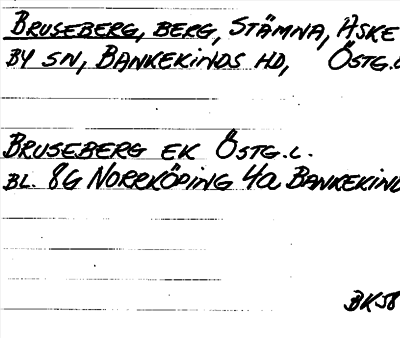 BRUSEBERG, BERG, STÄMNA, ASKE
BY SN, BANKEKINDS HD, ÖSTG.L
BRUSEBERG EK ÖSTG.L.
BL. 8G NORRKÖPING 4a BANKEKIND
BK58